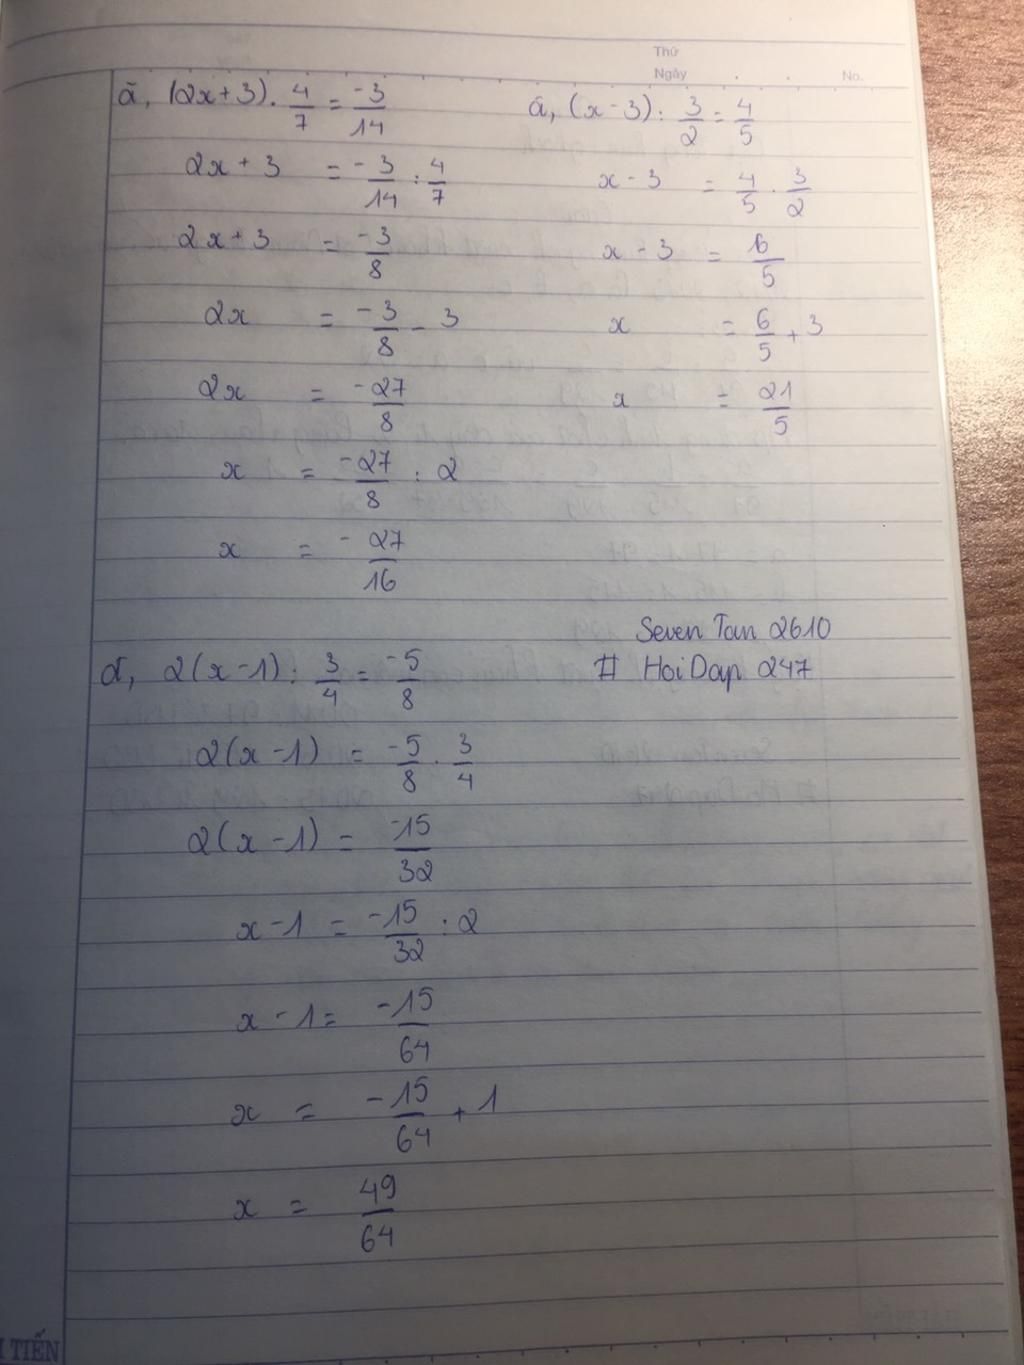 Thứ
Ngày No.
ã, (2x+3) . 4/7 = -3/14
2x + 3 = -3/14 : 4/7
2x + 3 = -3/8
2x = -3/8 - 3
2x = -27/8
x = -27/8 : 2
x = -27/16
ả, (x - 3) : 3/2 = 4/5
x - 3 = 4/5 . 3/2
x - 3 = 6/5
x = 6/5 + 3
x = 21/5
Seven Tan 2610
# HoiDap 247
2(x - 1) : 3/4 = -5/8
2(x - 1) = -5/8 . 3/4
2(x - 1) = -15/32
x - 1 = -15/32 : 2
x - 1 = -15/64
x = -15/64 + 1
x = 49/64
TIẾN